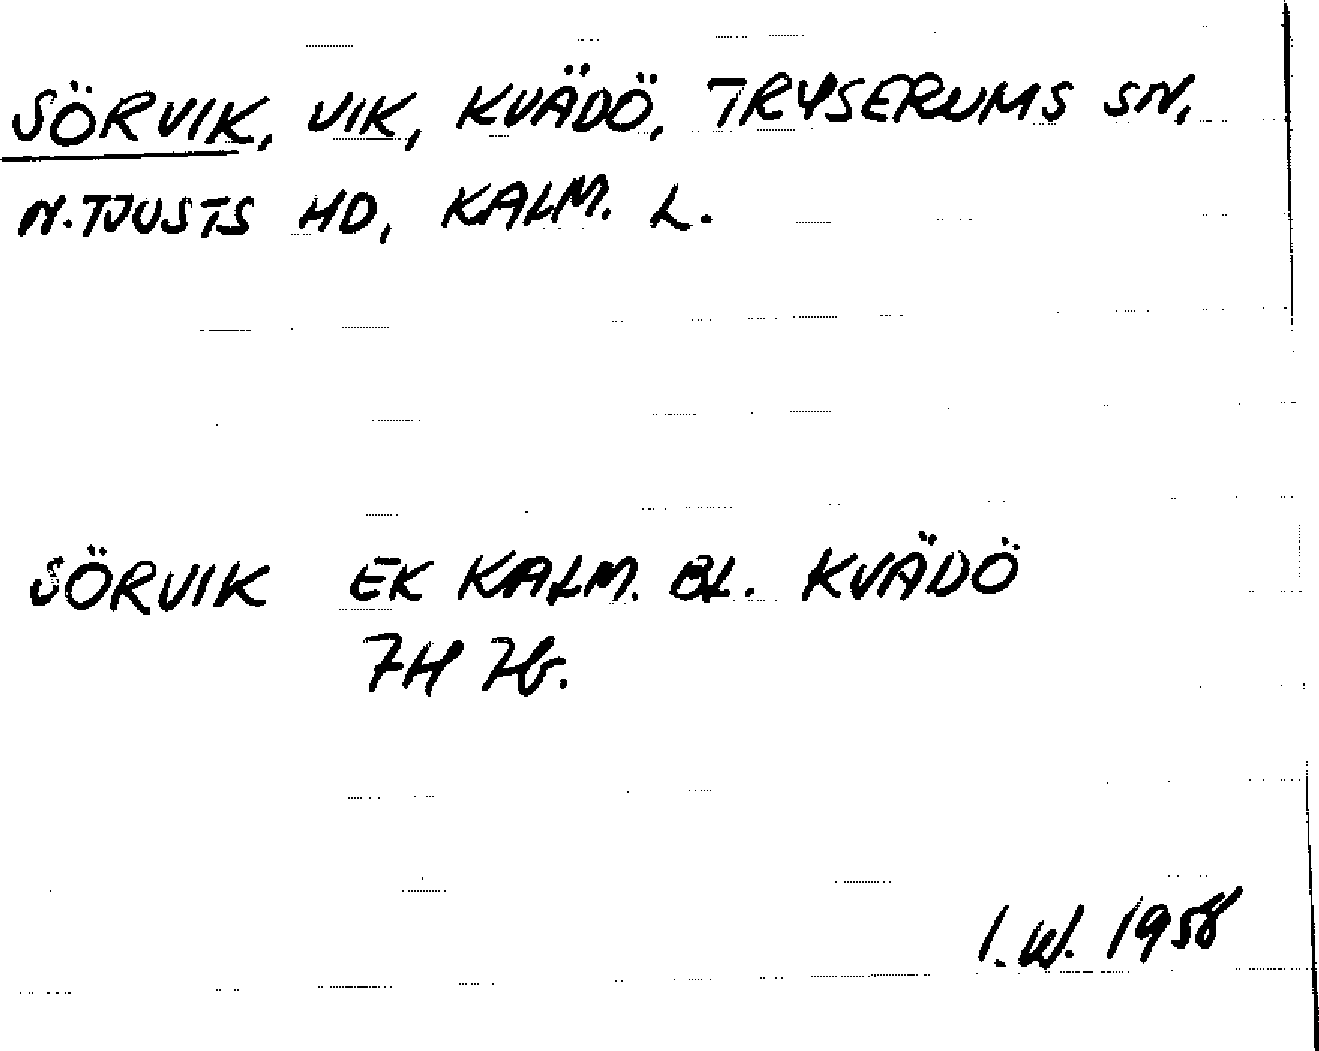 SÖRVIK, VIK, KVÄDÖ, TRYSERUMS SN,
N. TJUSTS HD, KALM. L.
SÖRVIK EK KALM. BL. KVÄDÖ
7H 7b.
I. W. 1958